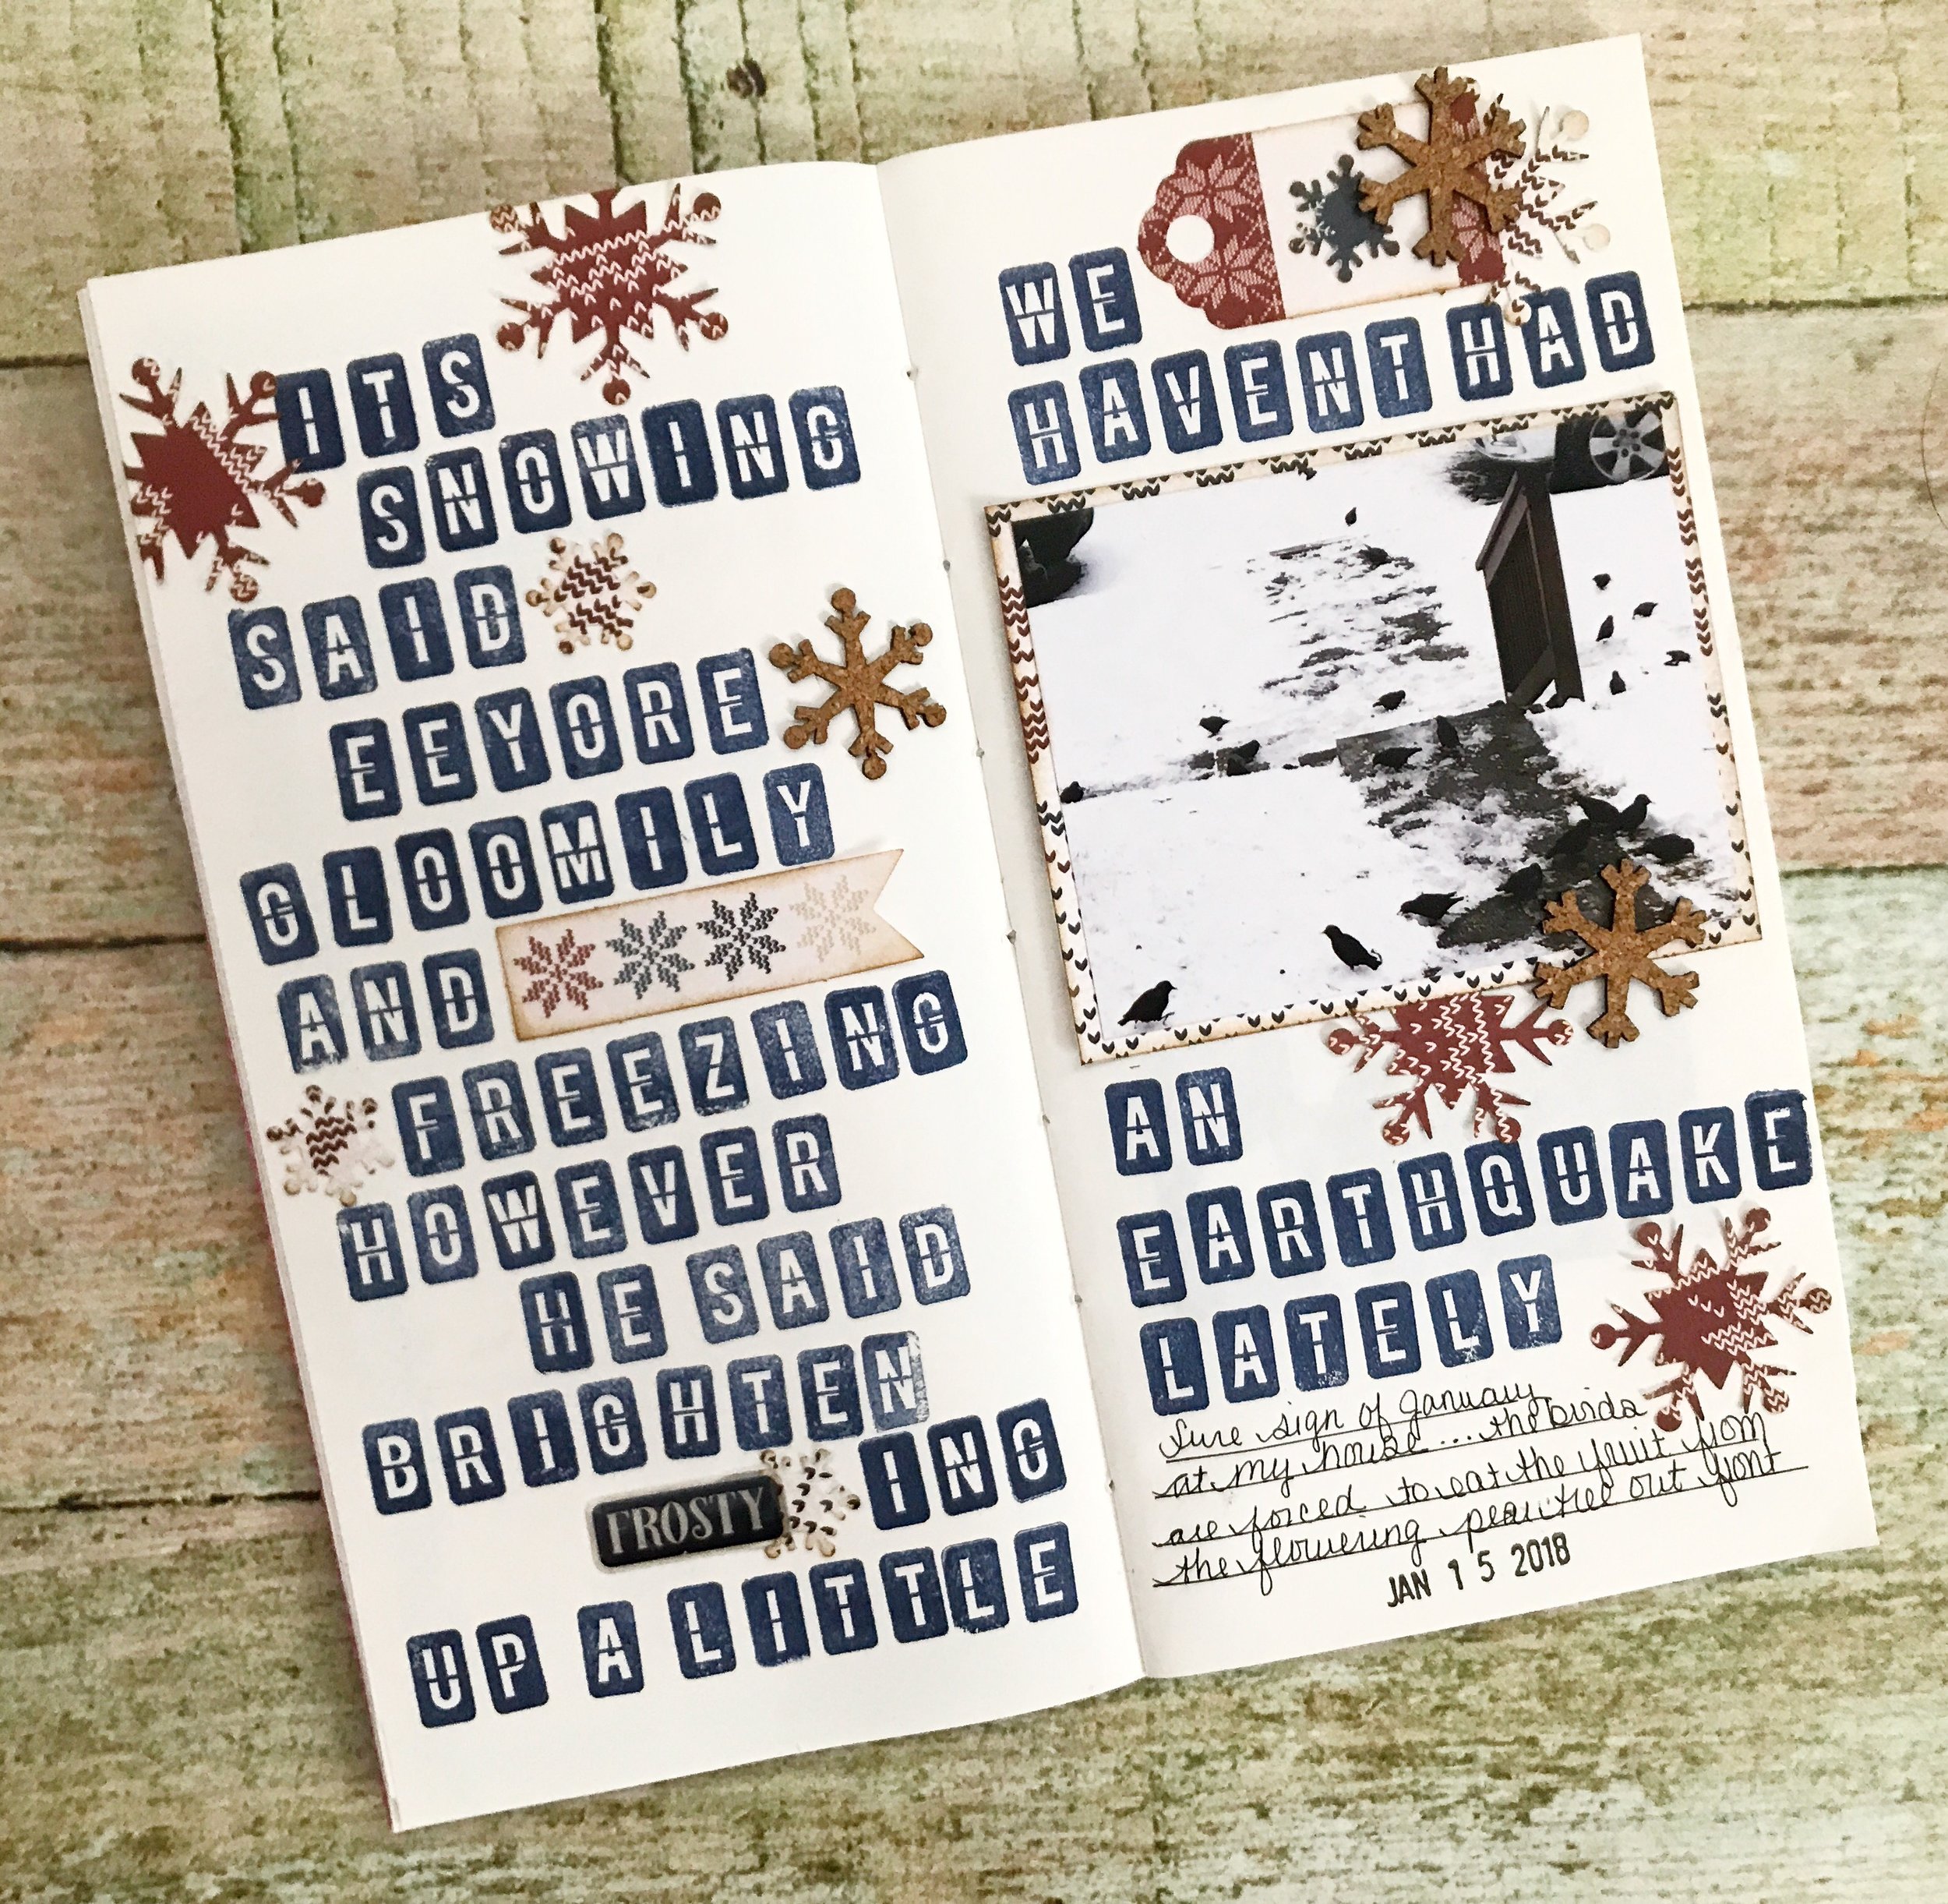 ITS
SNOWING
SAID
EEYORE
GLOOMILY
AND
FREEZING
HOWEVER
HE SAID
BRIGHTEN
FROSTY ING
UP A LITTLE
WE
HAVENT HAD
AN
EARTHQUAKE
LATELY
Sure sign of January
at my house... the birds
are forced to eat the fruit from
the flowering pear tree out front
JAN 15 2018